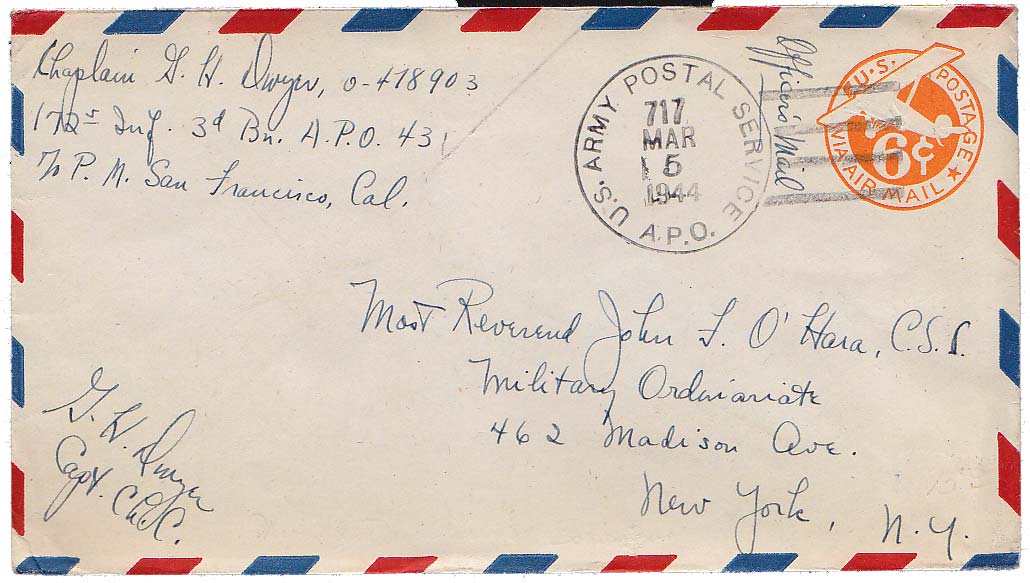 Chaplain G. H. Dwyer, O-478903
172nd Inf. 3d Bn. A.P.O. 43
℅ P. M. San Francisco, Cal.
U.S. ARMY POSTAL SERVICE
717
MAR
5
1944
A.P.O.
Officer's Mail
U.S. POSTAGE
6¢
VIA AIR MAIL
Most Reverend John F. O'Hara, C.S.C.
Military Ordinariate
462 Madison Ave.
New York, N.Y.
G. H. Dwyer
Capt. Ch.C.